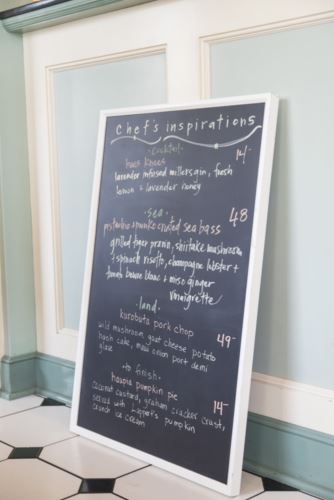 chef's inspirations
·cocktail·
bees knees 14-
lavender infused millers gin, fresh
lemon + lavender honey
·sea·
pistachio + panko crusted sea bass 48
grilled tiger prawn, shiitake mushroom
+ spinach risotto, champagne lobster +
tomato beurre blanc + miso ginger
vinaigrette
·land·
kurobuta pork chop
wild mushroom, goat cheese potato 49-
hash cake, maui onion port demi
glaze
·to finish·
haupia pumpkin pie 14-
coconut custard, graham cracker crust,
served with pumpkin
crunch ice cream